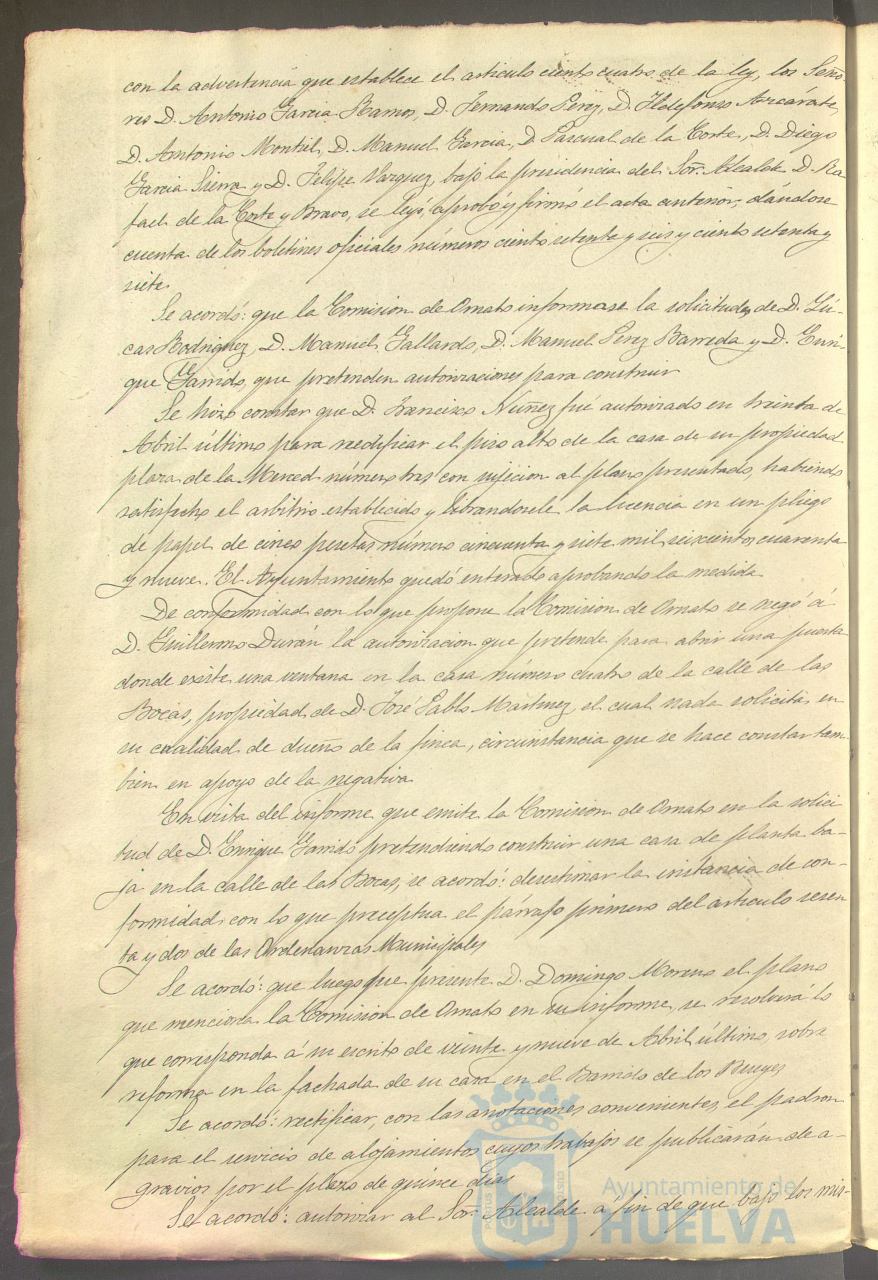 con la advertencia que establece el artículo ciento cuatro de la ley, los Seño-
res D. Antonio Garcia Ramos, D. Fernando Perez, D. Ildefonso Azcárate,
D. Antonio Montiel, D. Manuel Garcia, D. Pascual de la Corte, D. Diego
Garcia Sierra y D. Felipe Vazquez, bajo la presidencia del Sor. Alcalde D. Ra
fael de la Corte y Bravo, se leyó, aprobó y firmó el acta anterior; dándose
cuenta de los boletines oficiales números ciento setenta y seis y ciento setenta y
siete.
Se acordó: que la Comision de Ornato informase la solicitudes de D. Lú-
cas Rodriguez, D. Manuel Gallardo, D. Manuel Perez Barreda y D. Enri-
que Garrido, que pretenden autorizaciones para construir.
Se hizo constar que D. Francisco Nuñez fué autorizado en treinta de
Abril último para reedificar el piso alto de la casa de su propiedad
plaza de la Merced número tres con sujecion al plano presentado, habiendo
satisfecho el arbitrio establecido y librandosele la licencia en un pliego
de papel de cinco pesetas número cincuenta y siete mil seiscientos cuarenta
y nueve. El Ayuntamiento quedó enterado aprobando la medida.
De conformidad con lo que propone la Comision de Ornato se negó á
D. Guillermo Durán la autorizacion que pretende para abrir una puerta
donde existe una ventana en la casa número cuatro de la calle de las
Bocas, propiedad de D. José Pablo Martinez, el cual nada solicita en
su cualidad de dueño de la finca, circunstancia que se hace constar tam-
bien en apoyo de la negativa.
En vista del informe que emite la Comision de Ornato en la solici
tud de D. Enrique Garrido pretendiendo construir una casa de planta ba-
ja en la calle de las Bocas, se acordó: desestimar la instancia de con-
formidad con lo que preceptua el párrafo primero del artículo sesen
ta y dos de las Ordenanzas Municipales.
Se acordó: que luego que presente D. Domingo Moreno el plano
que menciona la Comision de Ornato en su informe, se resolverá lo
que corresponda á su escrito de veinte y nueve de Abril último, sobre
reforma en la fachada de su casa en el Barrido de los Reyes,
Se acordó: rectificar, con las anotaciones convenientes, el padron
para el servicio de alojamientos cuyos trabajos se publicarán de a-
gravios por el plazo de quince dias.
Se acordó: autorizar al Sor. Alcalde a fin de que bajo los mis-
Ayuntamiento de
HUELVA